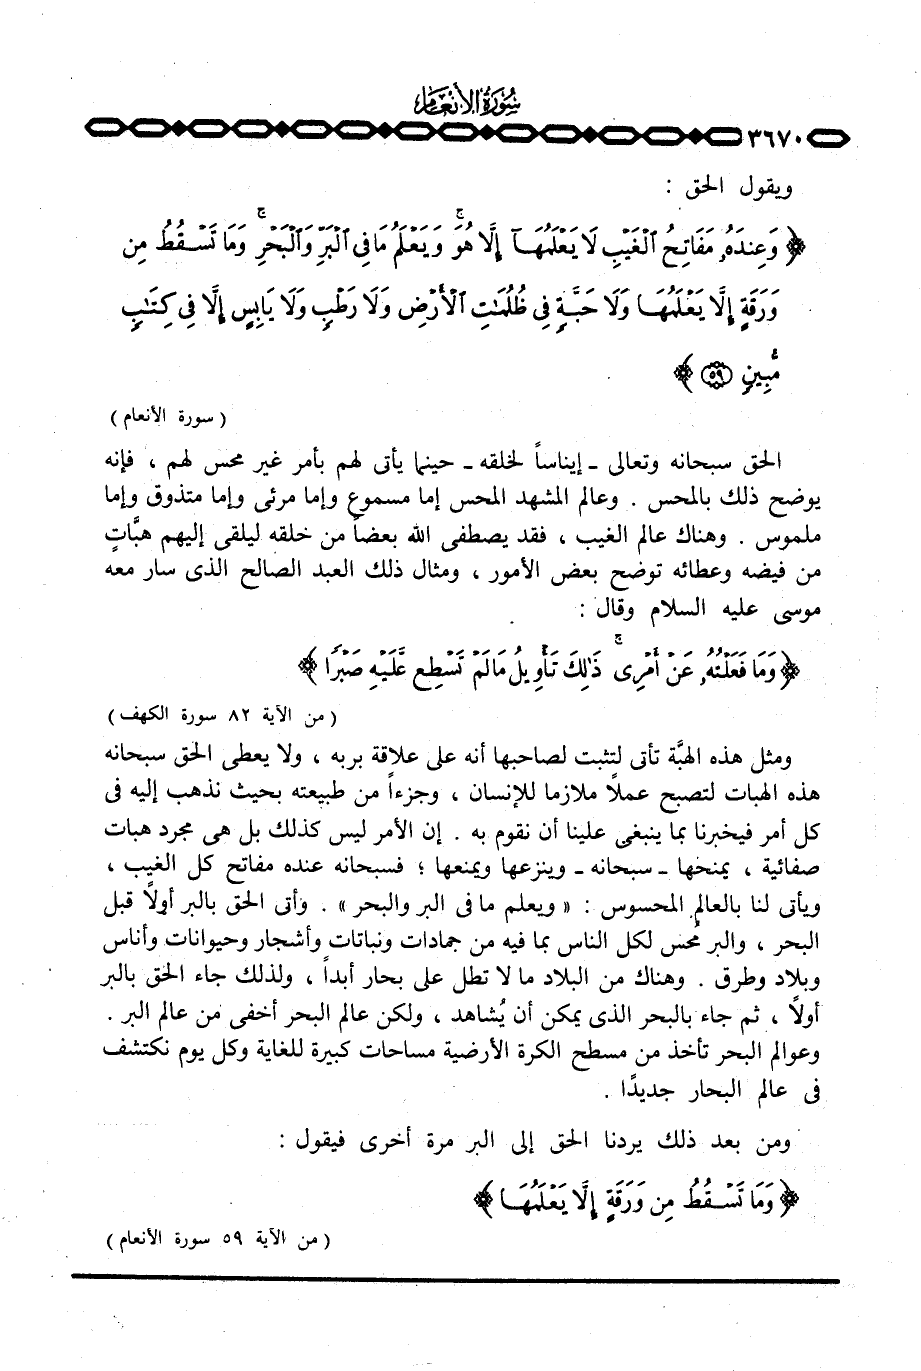 سورة الأنعام
٣٦٧٠
ويقول الحق :
﴿ وَعِندَهُۥ مَفَاتِحُ ٱلْغَيْبِ لَا يَعْلَمُهَآ إِلَّا هُوَ ۚ وَيَعْلَمُ مَا فِى ٱلْبَرِّ وَٱلْبَحْرِ ۚ وَمَا تَسْقُطُ مِن
وَرَقَةٍ إِلَّا يَعْلَمُهَا وَلَا حَبَّةٍ فِى ظُلُمَـٰتِ ٱلْأَرْضِ وَلَا رَطْبٍ وَلَا يَابِسٍ إِلَّا فِى كِتَـٰبٍ
مُّبِينٍ ﴿٥٩﴾ ﴾
( سورة الأنعام )
الحق سبحانه وتعالى ـ إيناساً لخلقه ـ حينما يأتى لهم بأمر غير محس لهم ، فإنه
يوضح ذلك بالمحس . وعالم المشهد المحس إما مسموع وإما مرئى وإما متذوق وإما
ملموس . وهناك عالم الغيب ، فقد يصطفى الله بعضاً من خلقه ليلقى إليهم هبَّاتٍ
من فيضه وعطائه توضح بعض الأمور ، ومثال ذلك العبد الصالح الذى سار معه
موسى عليه السلام وقال :
﴿ وَمَا فَعَلْتُهُۥ عَنْ أَمْرِى ۚ ذَٰلِكَ تَأْوِيلُ مَا لَمْ تَسْطِع عَّلَيْهِ صَبْرًا ﴾
( من الآية ٨٢ سورة الكهف )
ومثل هذه الهبَّة تأتى لتثبت لصاحبها أنه على علاقة بربه ، ولا يعطى الحق سبحانه
هذه الهبات لتصبح عملاً ملازما للإنسان ، وجزءاً من طبيعته بحيث نذهب إليه فى
كل أمر فيخبرنا بما ينبغى علينا أن نقوم به . إن الأمر ليس كذلك بل هى مجرد هبات
صفائية ، يمنحها ـ سبحانه ـ وينزعها ويمنعها ؛ فسبحانه عنده مفاتح كل الغيب ،
ويأتى لنا بالعالم المحسوس : « ويعلم ما فى البر والبحر » . وأتى الحق بالبر أولاً قبل
البحر ، والبر مُحس لكل الناس بما فيه من جمادات ونباتات وأشجار وحيوانات وأناس
وبلاد وطرق . وهناك من البلاد ما لا تطل على بحار أبداً ، ولذلك جاء الحق بالبر
أولاً ، ثم جاء بالبحر الذى يمكن أن يُشاهد ، ولكن عالم البحر أخفى من عالم البر .
وعوالم البحر تأخذ من مسطح الكرة الأرضية مساحات كبيرة للغاية وكل يوم نكتشف
فى عالم البحار جديدًا .
ومن بعد ذلك يردنا الحق إلى البر مرة أخرى فيقول :
﴿ وَمَا تَسْقُطُ مِن وَرَقَةٍ إِلَّا يَعْلَمُهَا ﴾
( من الآية ٥٩ سورة الأنعام )